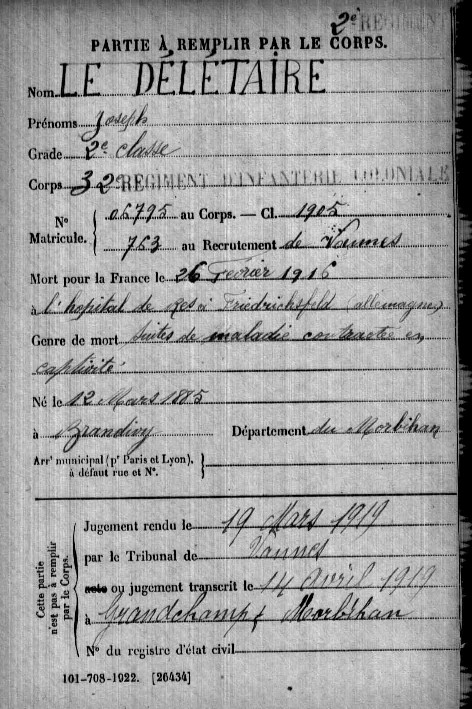 2e REGIMENT
PARTIE À REMPLIR PAR LE CORPS.
Nom LE DÉLÉTAIRE
Prénoms Joseph
Grade 2e classe
Corps 32e REGIMENT D'INFANTERIE COLONIALE
No Matricule. { 05795 au Corps. — Cl. 1905
763 au Recrutement de Vannes
Mort pour la France le 26 Fevrier 1916
à l'hopital de Friedrichsfeld (allemagne)
Genre de mort Suites de maladie contractée en
captivité
Né le 12 Mars 1885
à Brandivy Département du Morbihan
Arrt municipal (pr Paris et Lyon), }
à défaut rue et No.
Cette partie
n'est pas à remplir
par le Corps.
Jugement rendu le 19 Mars 1919
par le Tribunal de Vannes
acte ou jugement transcrit le 14 avril 1919
à Grandchamp Morbihan
No du registre d'état civil
101-708-1922. [26434]